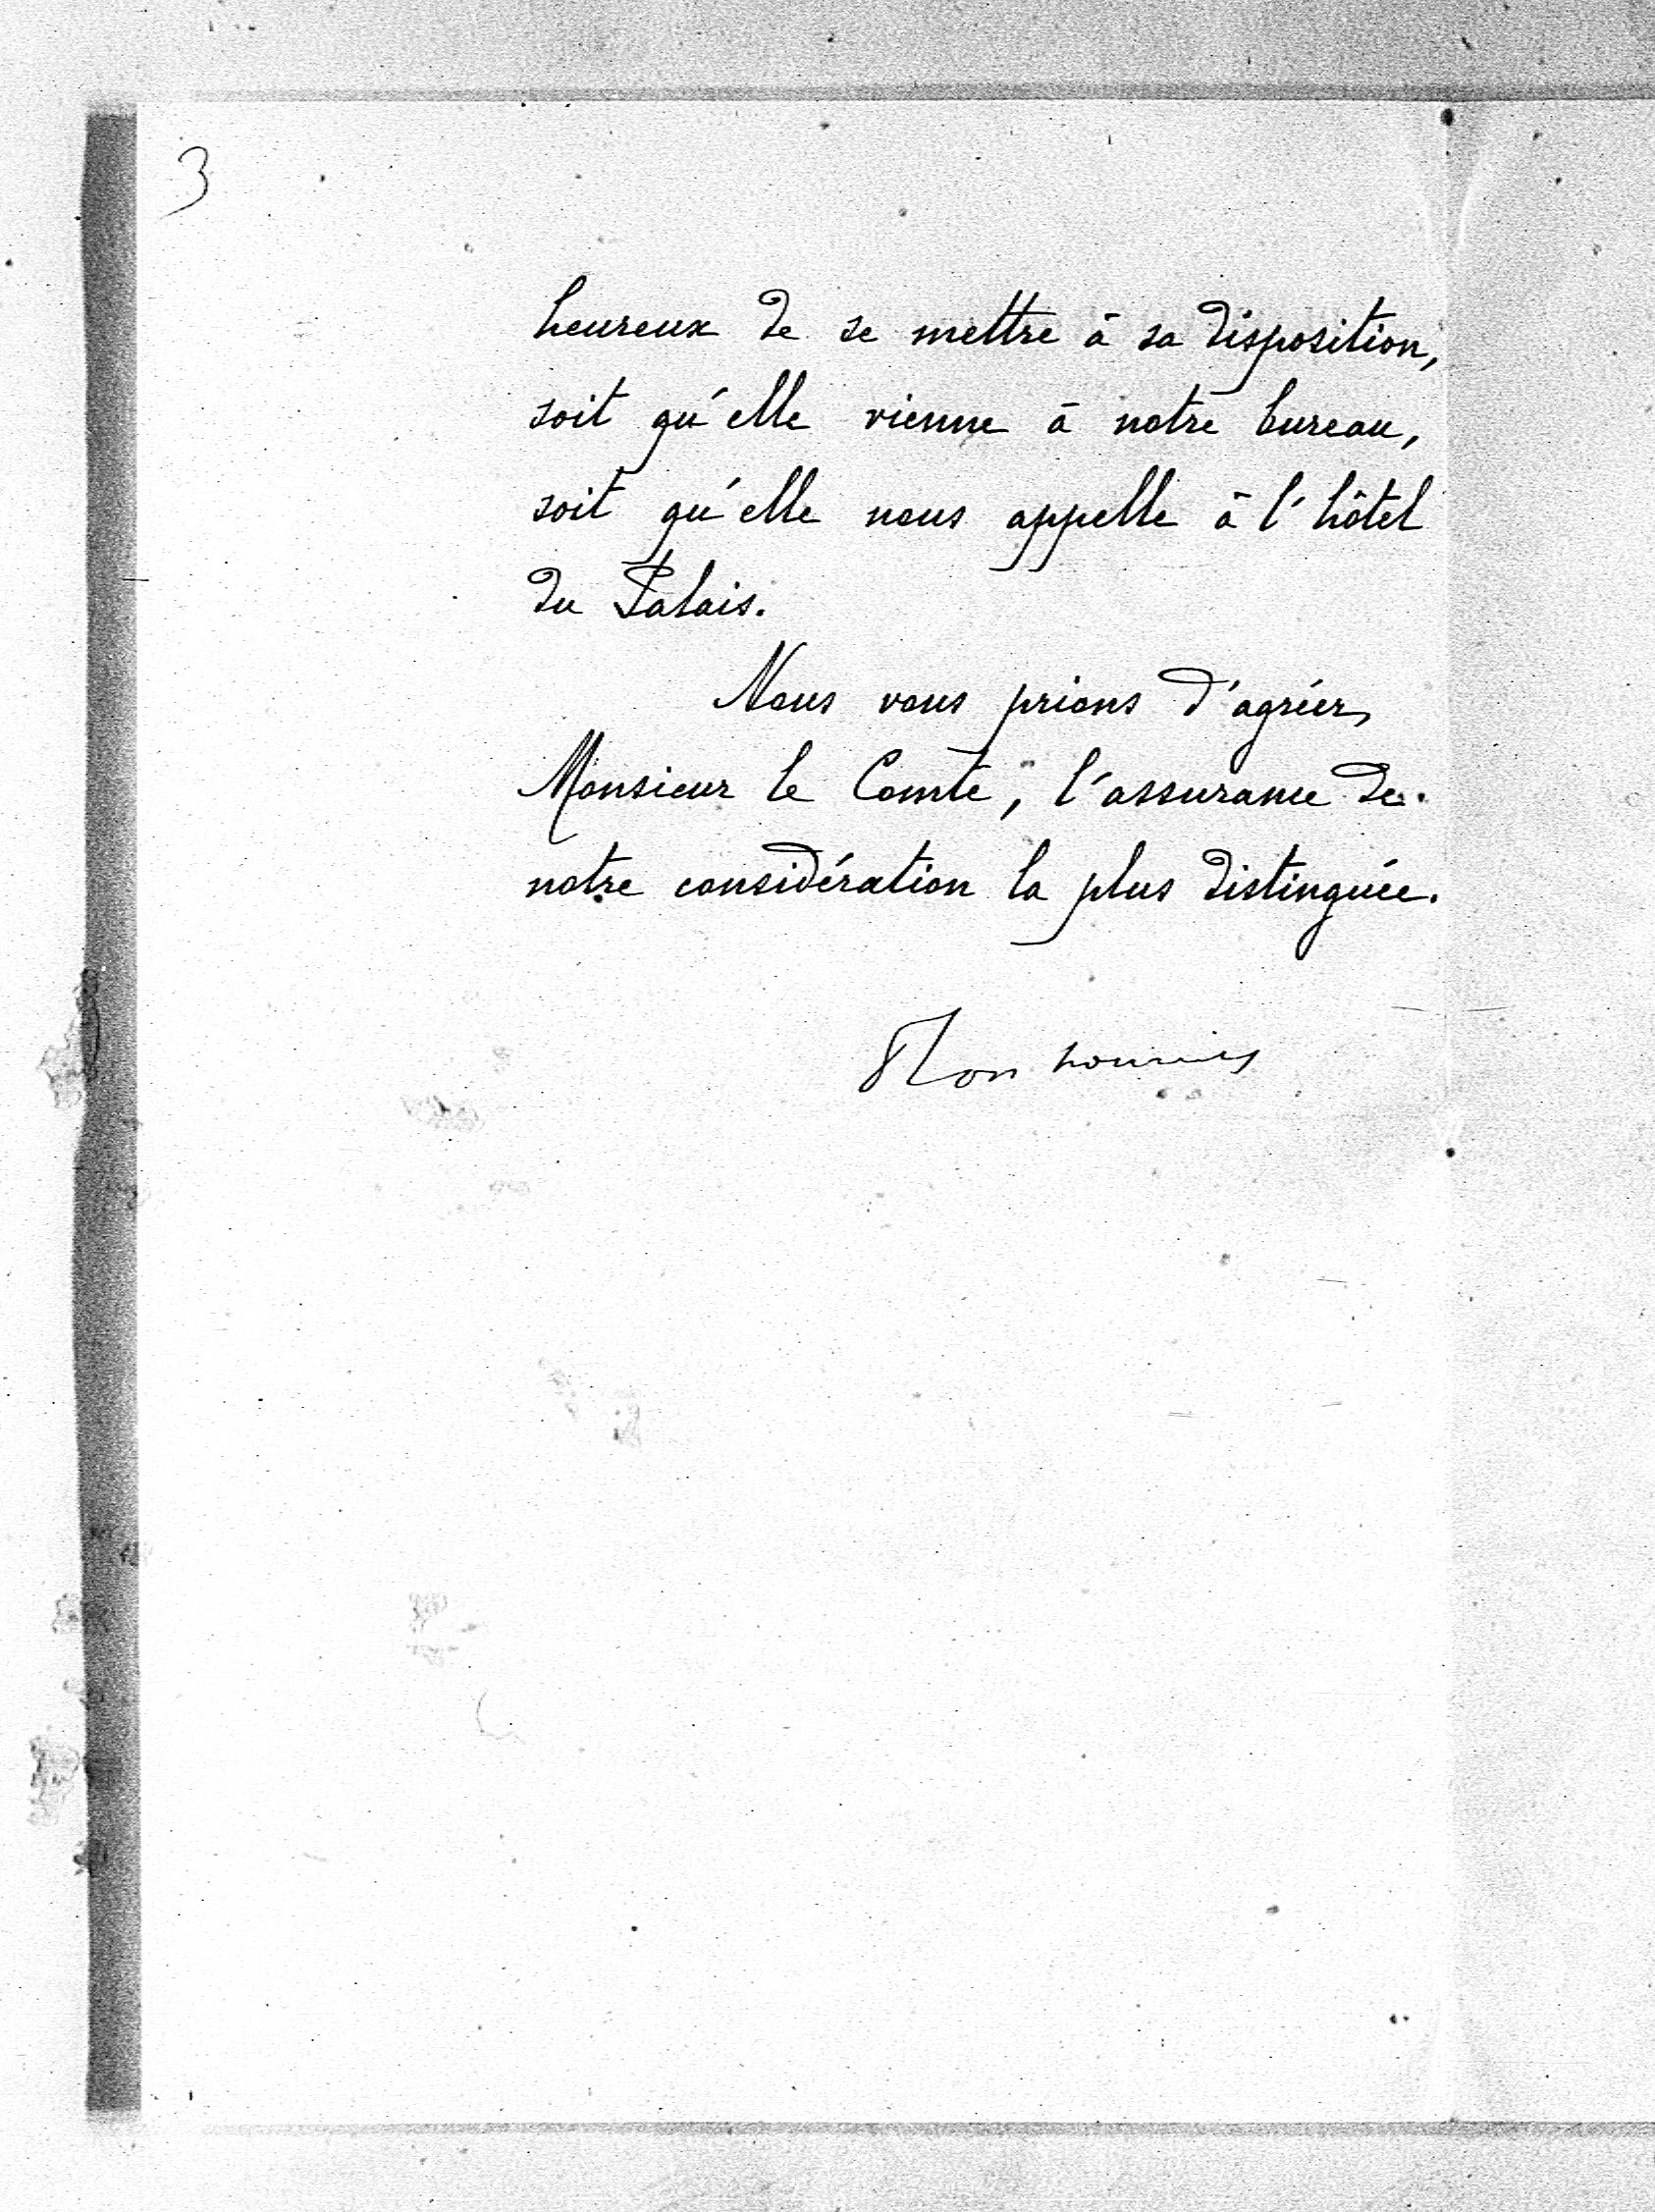 3
heureux de se mettre à sa disposition,
soit qu'elle vienne à notre bureau,
soit qu'elle nous appelle à l'hôtel
du Palais.
Nous vous prions d'agréer,
Monsieur le Comte, l'assurance de
notre considération la plus distinguée.